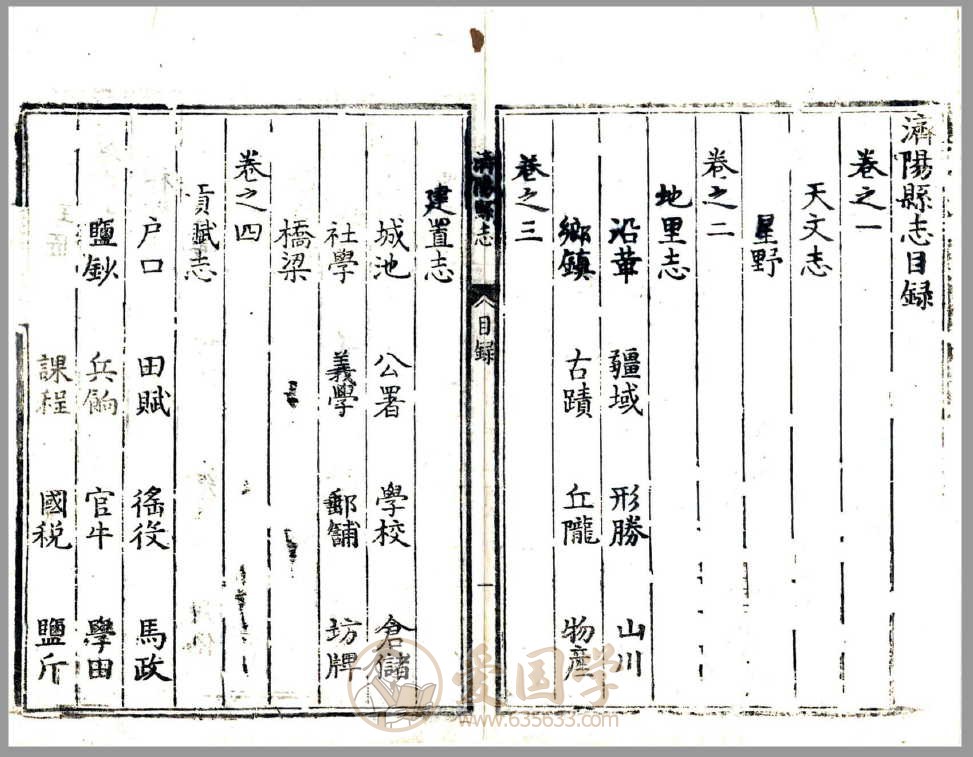 濟陽縣志目録
卷之一
天文志
星野
卷之二
地里志
沿革 疆域 形勝 山川
鄉鎮 古蹟 丘隴 物産
卷之三
濟陽縣志 目録 一
建置志
城池 公署 學校 倉儲
社學 義學 郵舖 坊牌
橋梁
卷之四
貢賦志
户口 田賦 徭役 馬政
鹽鈔 兵餉 官牛 學田
課程 國税 鹽斤
爱国学
www.635633.com